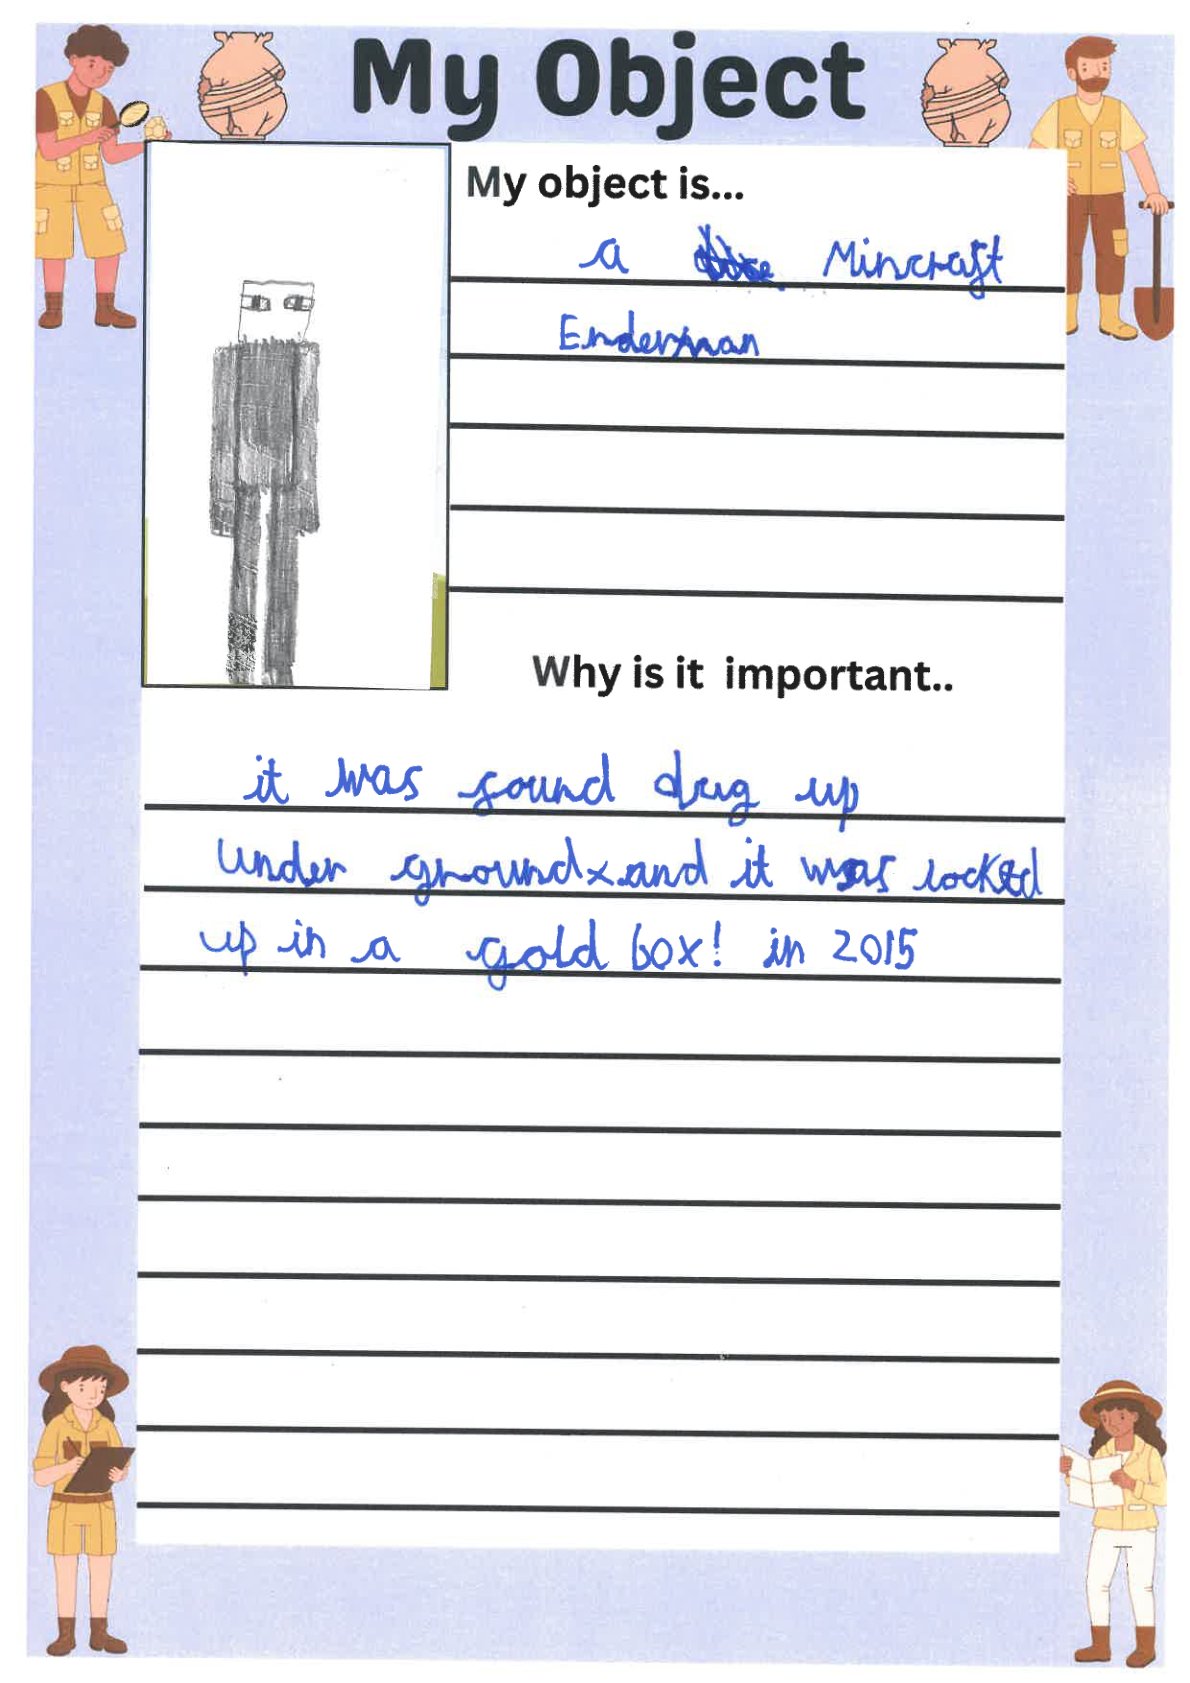 My Object
My object is...
a Mincraft
Enderman
Why is it important..
it was found dug up
under ground and it was locked
up in a gold box! in 2015